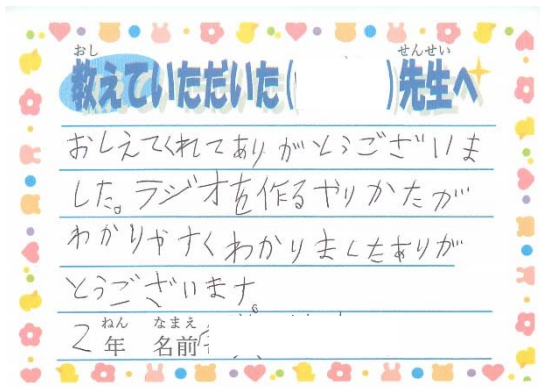 教えていただいた( )先生へ
おしえてくれてありがとうございま
した。ラジオを作るやりかたが
わかりやすくわかりましたありが
とうございます。
2年 名前